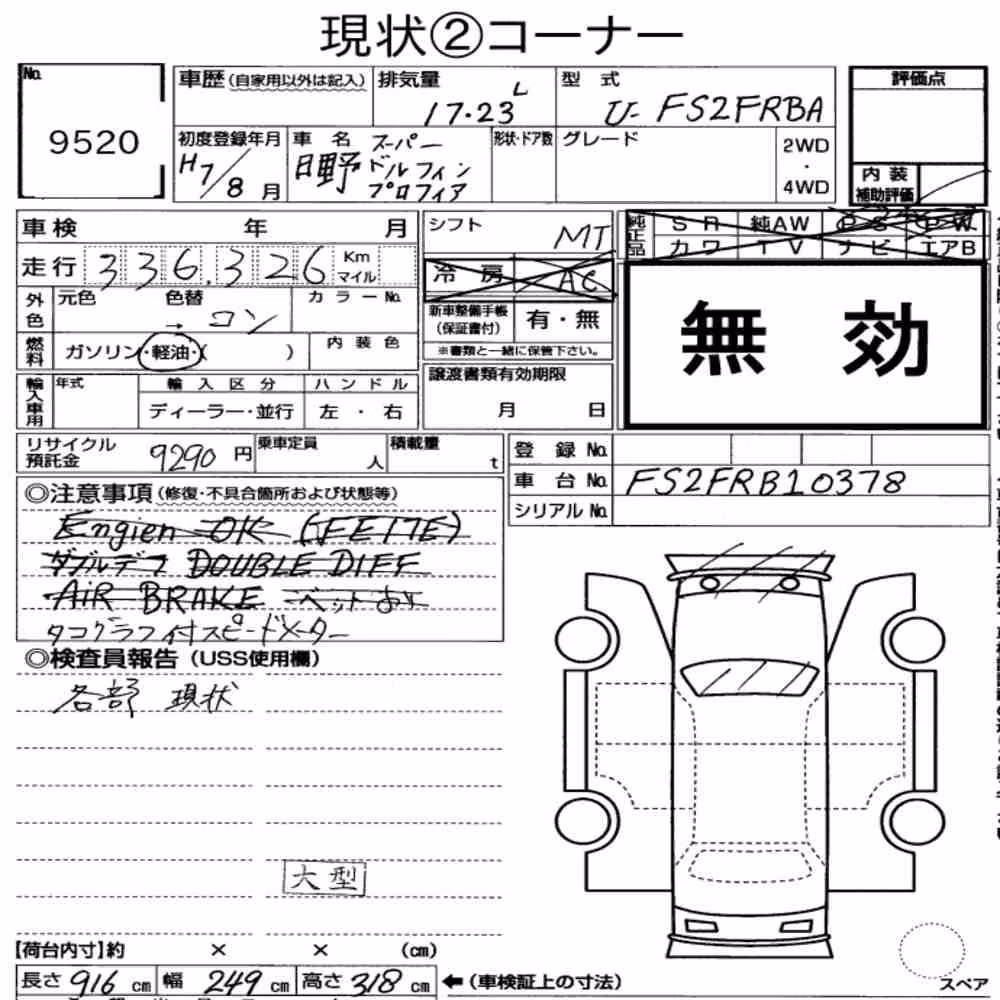 現状②コーナー
No.
9520
車歴(自家用以外は記入)
排気量
17.23 L
型式
U- FS2FRBA
評価点
初度登録年月
H7/8月
車名
日野 スーパー
ドルフィン
プロフィア
形状・ドア数
グレード
2WD
・
4WD
内装
補助評価
車検 年 月
走行 336,326 Km
マイル
シフト
MT
純正品
SR 純AW PS PW
カワ TV ナビ エアB
冷房 AC
外色
元色 色替 カラーNo.
→ コン
新車整備手帳
(保証書付)
有・無
※書類と一緒に保管下さい。
無効
燃料
ガソリン・軽油・( )
内装色
輸入車用
年式 輸入区分 ハンドル
ディーラー・並行 左・右
譲渡書類有効期限
月 日
リサイクル
預託金
9290円
乗車定員
人
積載量
t
登録No.
車台No. FS2FRB10378
シリアルNo.
◎注意事項(修復・不具合箇所および状態等)
Engien OK (FE17E)
ダブルデフ DOUBLE DIFF
AiR BRAKE ベットあり
タコグラフ付スピードメーター
◎検査員報告(USS使用欄)
各部 現状
大型
【荷台内寸】約 × × (cm)
長さ 916 cm 幅 249 cm 高さ 318 cm
←(車検証上の寸法)
スペア